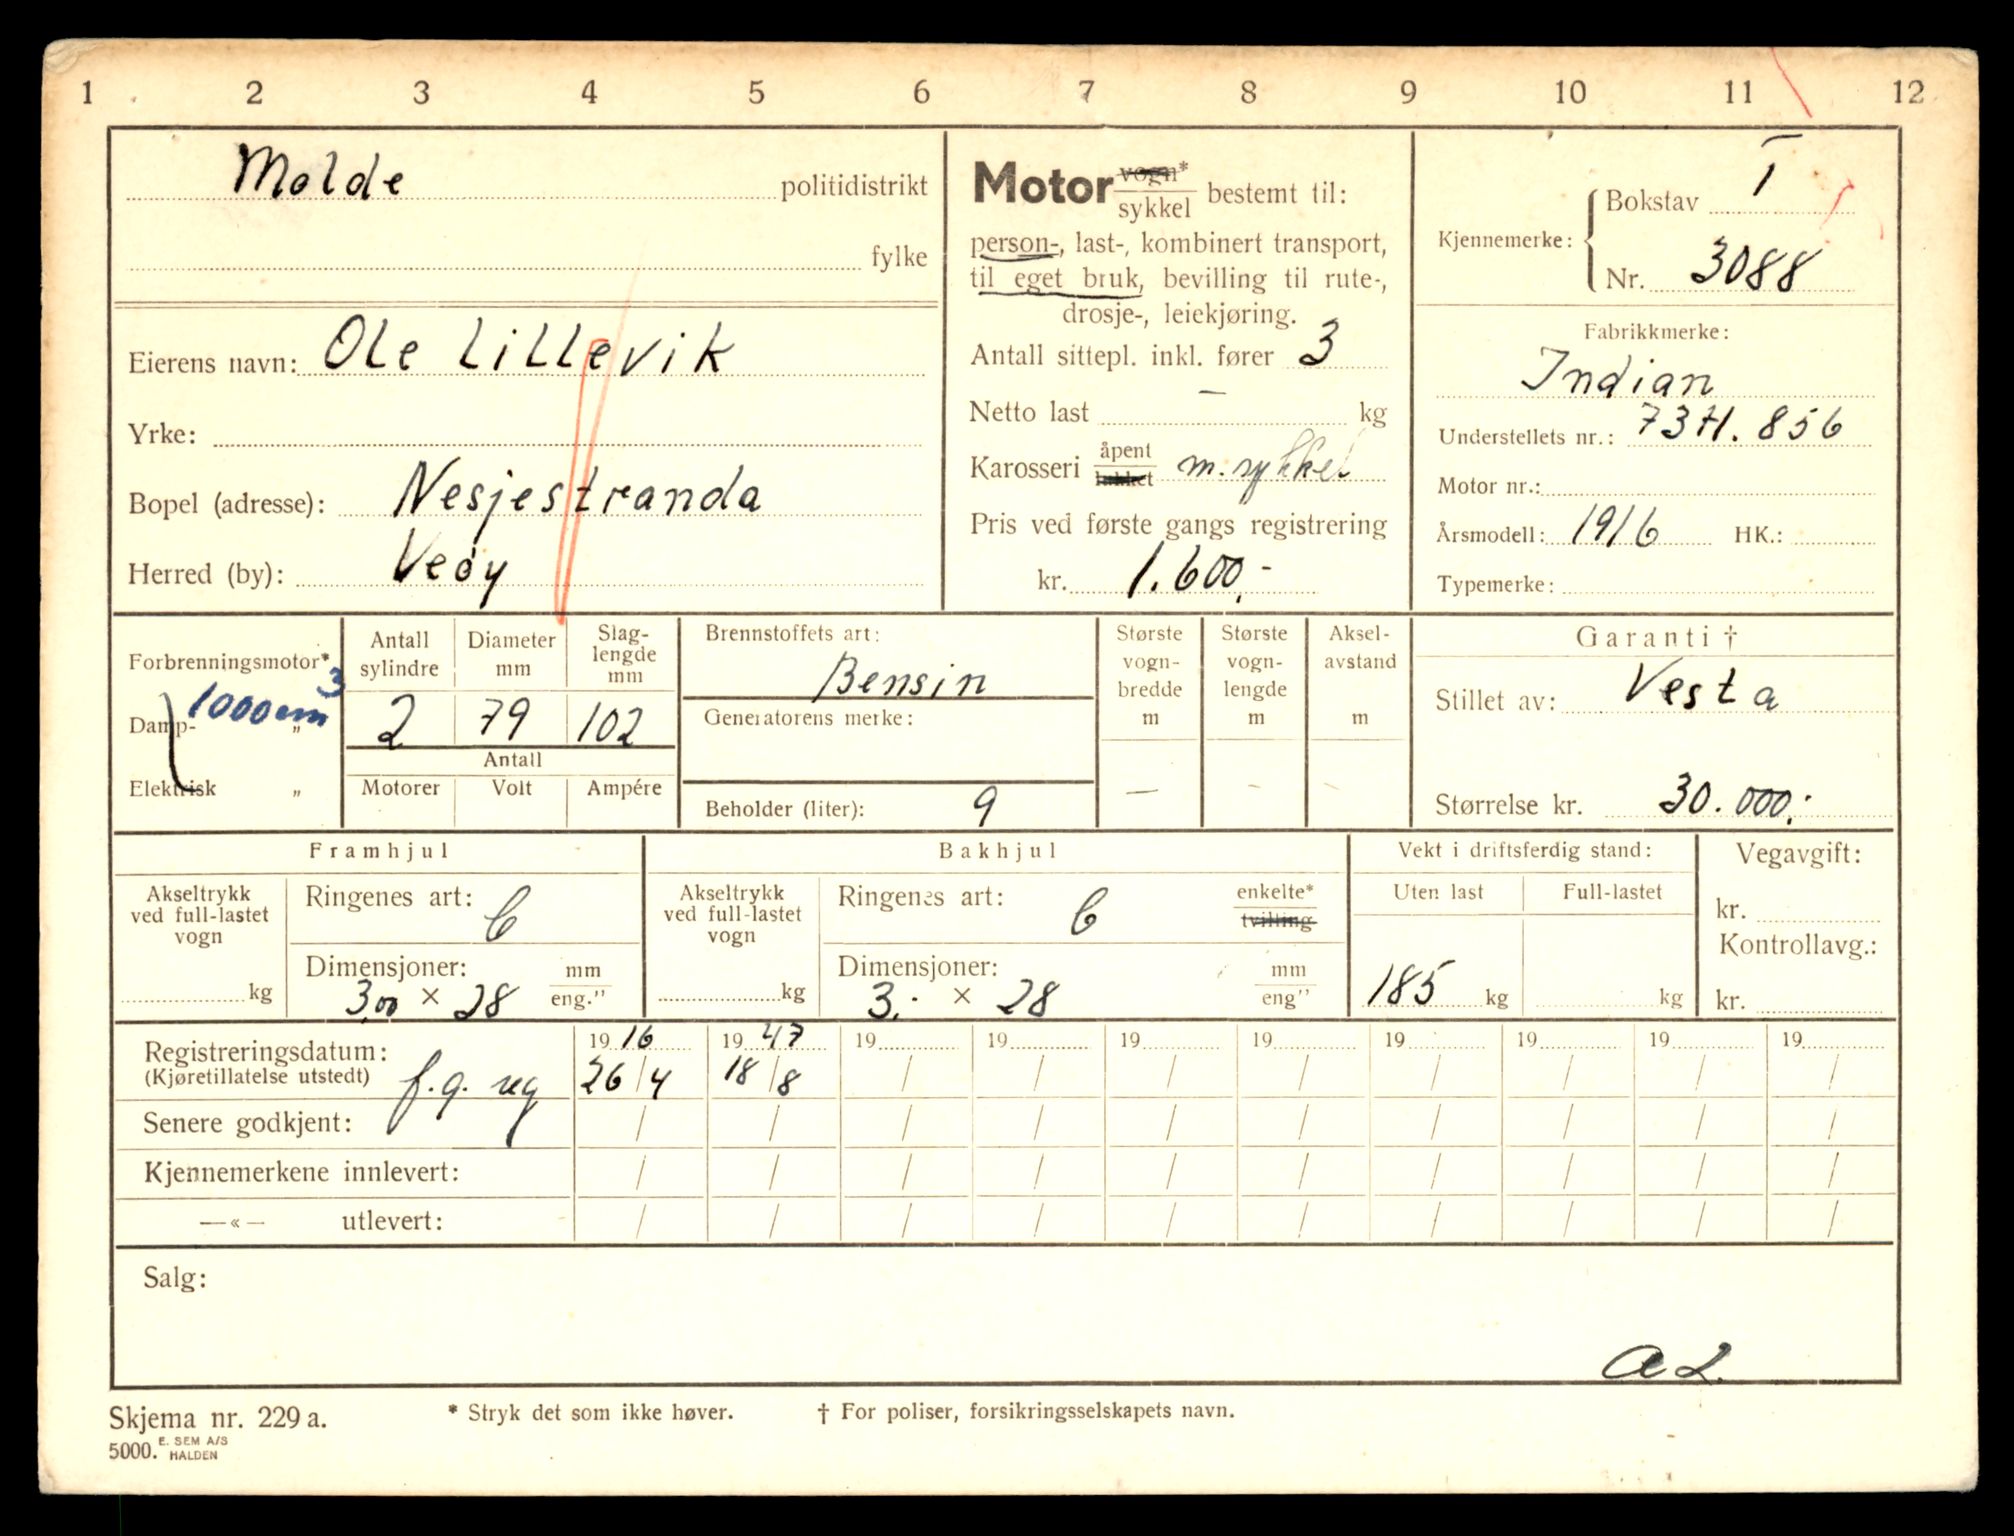 1 2 3 4 5 6 7 8 9 10 11 12
Molde politidistrikt
fylke
Eierens navn: Ole Lillevik
Yrke:
Bopel (adresse): Nesjestranda
Herred (by): Veøy
Motor vogn* / sykkel bestemt til:
person-, last-, kombinert transport,
til eget bruk, bevilling til rute-,
drosje-, leiekjøring.
Antall sittepl. inkl. fører 3
Netto last — kg
Karosseri åpent / lukket m. sykkel
Pris ved første gangs registrering
kr. 1.600,-
Kjennemerke: Bokstav T
Nr. 3088
Fabrikkmerke:
Indian
Understellets nr.: 73H.856
Motor nr.:
Årsmodell: 1916 HK.:
Typemerke:
Forbrenningsmotor*
1000 cm3
Damp- „
Elektrisk „
Antall sylindre Diameter mm Slag-lengde mm
2 79 102
Antall
Motorer Volt Ampére
Brennstoffets art:
Bensin
Generatorens merke:
Beholder (liter): 9
Største vogn-bredde m Største vogn-lengde m Aksel-avstand m
— - -
Garanti †
Stillet av: Vesta
Størrelse kr. 30.000,-
Framhjul
Akseltrykk ved full-lastet vogn
kg
Ringenes art: C
Dimensjoner: mm / eng."
3,00 × 28
Bakhjul
Akseltrykk ved full-lastet vogn
kg
Ringenes art: C enkelte* / tvilling
Dimensjoner: mm / eng"
3.- × 28
Vekt i driftsferdig stand:
Uten last Full-lastet
185 kg kg
Vegavgift:
kr.
Kontrollavg.:
kr.
Registreringsdatum: 19 16 19 47 19 19 19 19 19 19 19 19
(Kjøretillatelse utstedt) f.g. reg 26/4 18/8 / / / / / / / /
Senere godkjent: / / / / / / / / / /
Kjennemerkene innlevert: / / / / / / / / / /
—«— utlevert: / / / / / / / / / /
Salg:
a2.
Skjema nr. 229 a. * Stryk det som ikke høver. † For poliser, forsikringsselskapets navn.
5000. E. SEM A/S HALDEN